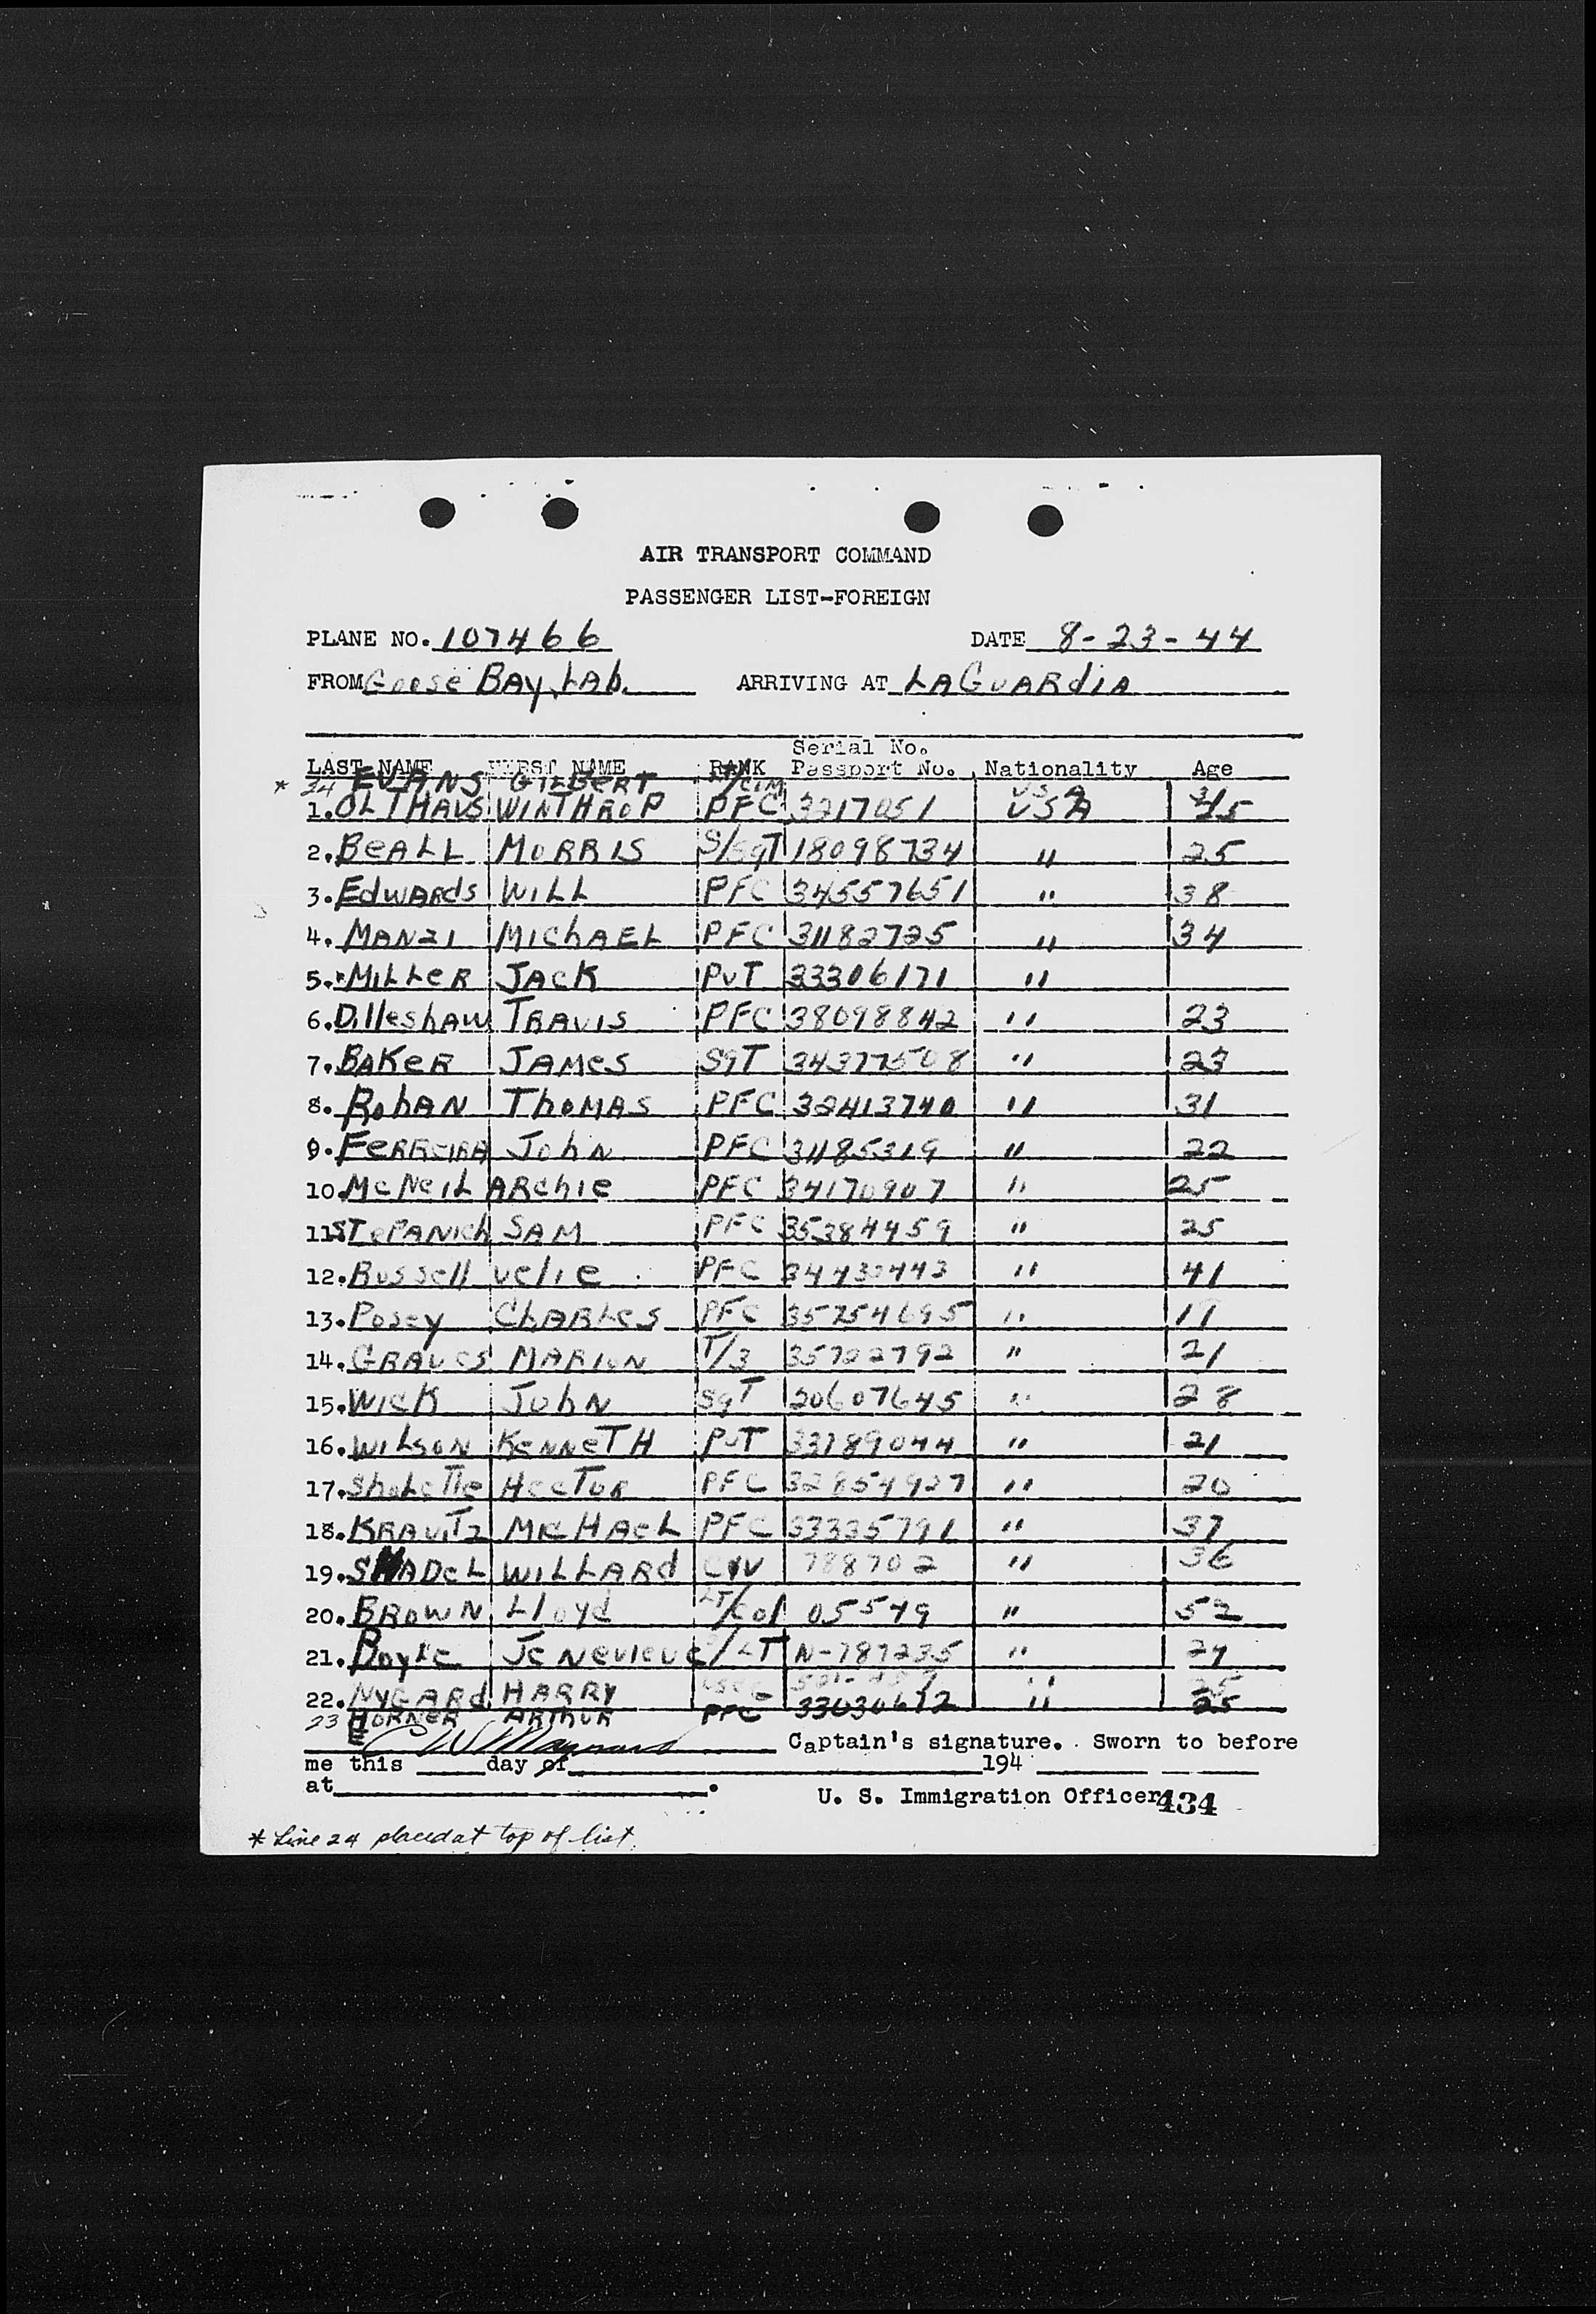 AIR TRANSPORT COMMAND
PASSENGER LIST-FOREIGN
PLANE NO. 107466 DATE 8-23-44
FROM Goose BAY, LAb. ARRIVING AT LAGUARdIA
Serial No.
LAST NAME FIRST NAME RANK Passport No. Nationality Age
* 24 EVANS GILBERT USA
1. OLTHAUS WINTHROP PFC 3217051 USA
2. BeALL MORRIS S/SgT 18098734 " 25
3. EdWARds WILL PFC 34557651 " 38
4. MANZI MIChAEL PFC 31182725 " 34
5. MILLeR JACK PvT 33306171 "
6. DilleshAW TRAVIS PFC 38098842 " 23
7. BAKeR JAMes SgT 34377508 " 23
8. RohAN ThoMAS PFC 32413740 " 31
9. FeRReIRA JohN PFC 31185319 " 22
10. McNeiL ARchie PFC 34170907 " 25
11. STePANich SAM PFC 35384459 " 25
12. Russell velie PFC " 41
13. Posey ChARLes PFC 35754695 " 19
14. GRAVes MARION T/3 35722792 " 21
15. WicK JohN SgT 20607645 " 28
16. WILSON KeNNeTH PvT 33789044 " 21
17. HecToR PFC 32854927 " 20
18. KRAVITZ MIcHAeL PFC 33335791 " 37
19. SHADeL WILLARd CIV 788702 " 36
20. BROWN Lloyd LT/Col 05549 " 52
21. BoyLe JeNevieve /LT N-787235 "
22. NYGARd HARRY "
23 HORNER ARTHUR PFC 33030672 " 25
Captain's signature. Sworn to before
me this day of 194
at .
U. S. Immigration Officer 434
* Line 24 placed at top of list.